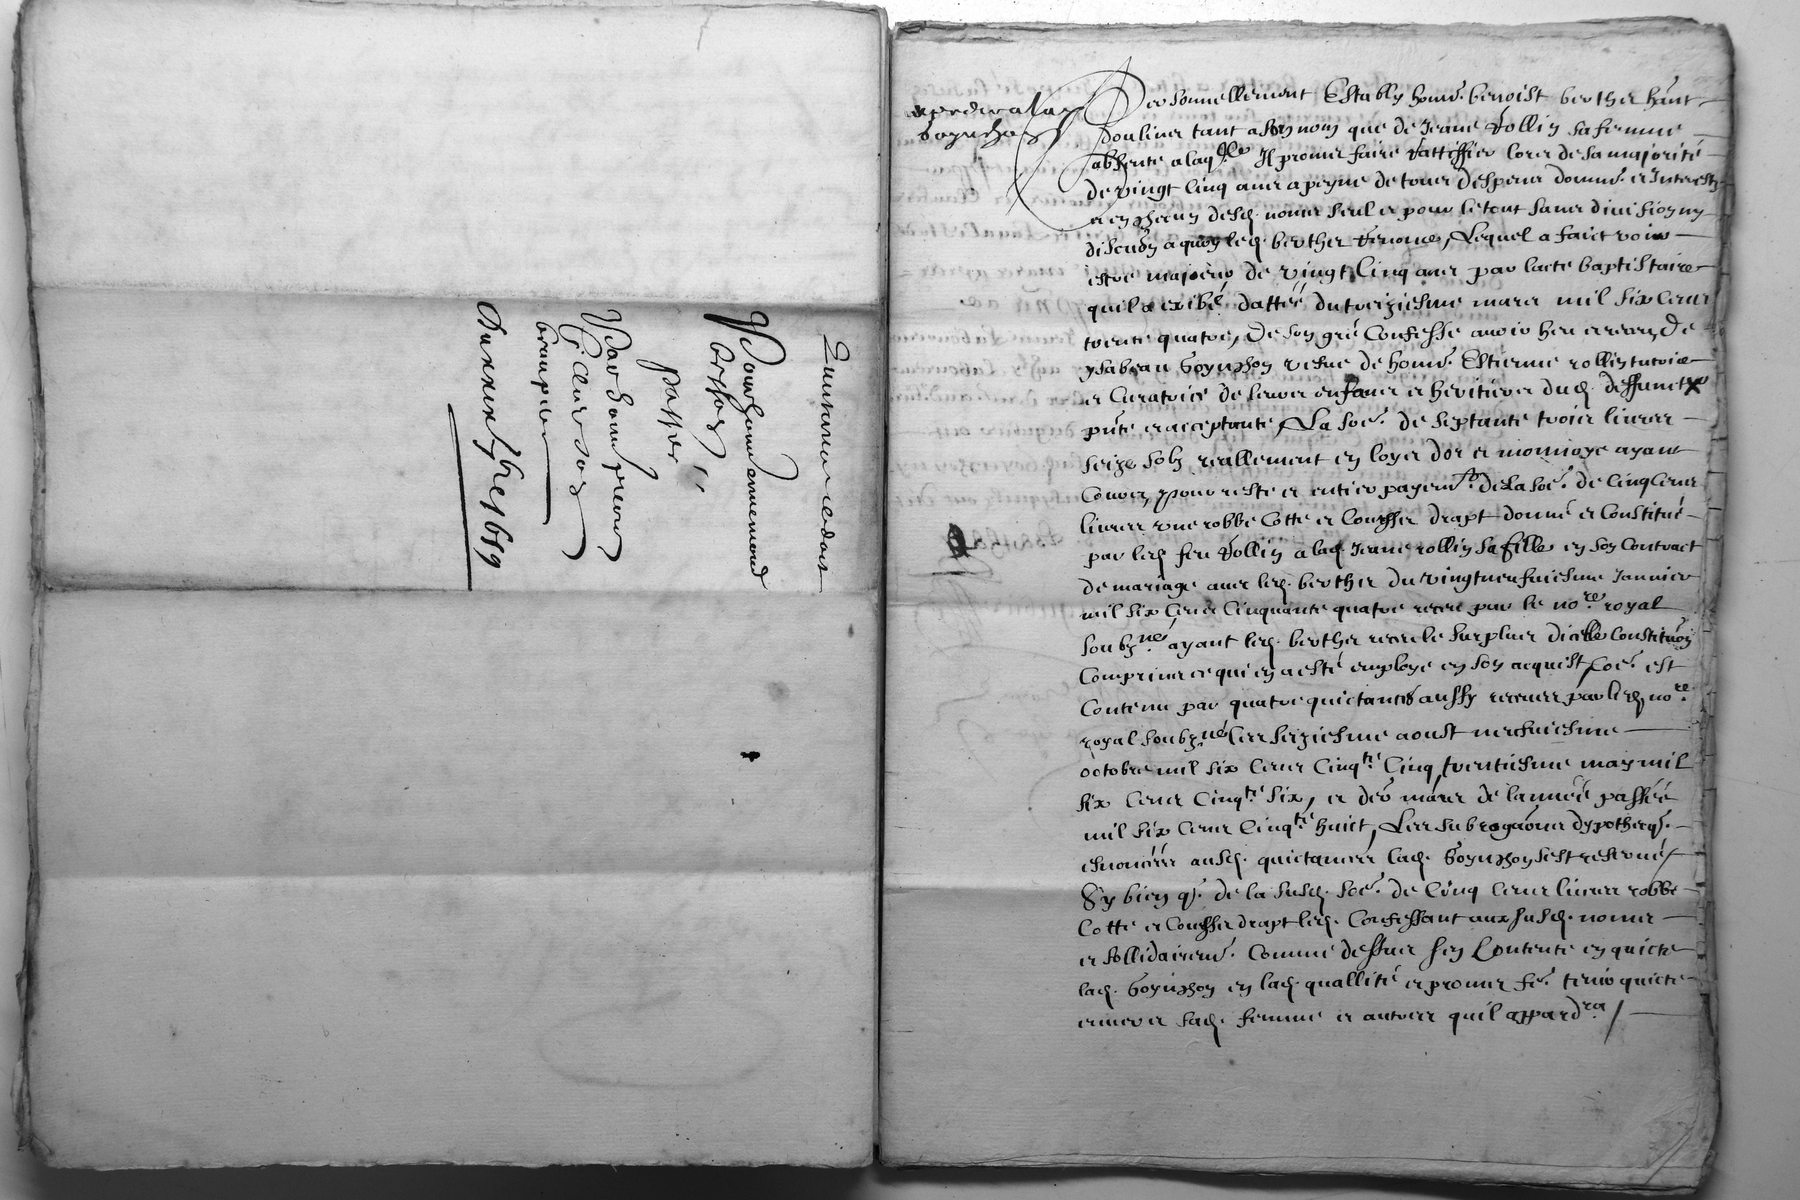 Quittance de dot
Pour hon. annemond
passée
Par hon. pierre
Du xxix 7bre 1659
Personnellement Estably hone. benoist berther hant
douliner tant a son nom que de Jeane Rollin sa femme
absente a laqlle Il promet faire rattiffier lors de sa majorité
de vingt cinq ans a peyne de tous despens domme. et Interestz
et en chacun desd. noms seul et pour le tout sans division ny
discuon a quoy led. berther renonce, Lequel a faict voir
estre majeur de vingt cinq ans par lacte baptistaire
quil a exibé datté du treiziesme mars mil six cens
trente quatre, De son gré Confesse avoir heu et receu de
ysabeau Goynchon vefve de hone. Estienne rollin tutrice
et Curatrice de leurs enfans et heritiers dud. deffunct
pnte et acceptante, La soe. de septante trois livres
seize solz reallement en loyer dor et monnoye ayant
Cours, pour reste et entier payemt. de La soe. de Cinq Cens
livres une robbe Cotte et Couffre drapt donné et Constitué
par led. feu Rollin a lad. Jeane rollin sa fille en son Contract
de mariage avec led. berther du vingtneufviesme Janvier
mil six Cens Cinquante quatre receu par le nore. royal
soubzné. ayant led. berther receu le surplus dicelle Constituon
Comprins ce qui en a esté employé en son acquist, Coe. est
Contenu par quatre quictances aussy receues par led. nore.
royal soubzné. les seiziesme aoust neufviesme
octobre mil six Cens Cinqte. Cinq, trentiesme may mil
six Cens Cinqte. six, et der. mars de lannée passée
mil six Cens Cinqte. huict, Les subrogaons dypotheq.
esnoncées ausd. quictances lad. Goynchon sest reservé /
Sy bien q. de la susd. soe. de Cinq Cens livres robbe
Cotte et Couffre drapt led. Confessant aux susd. noms
et sollidairemt. Comme dessus sen Contente en quicte
lad. Goynchon en lad. quallité et promet fe. tenir quicte
envers sad. femme et autres quil appardra /